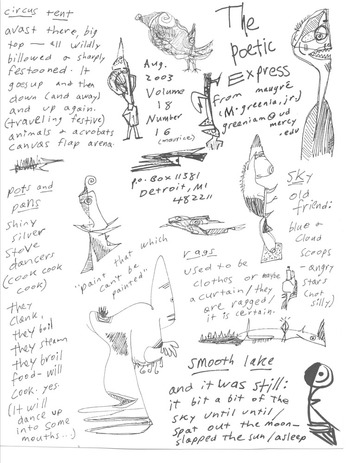 circus tent
avast there, big
top — all wildly
billowed & sharply
festooned. It
goes up and then
down (and away)
and up again.
(traveling festive)
animals & acrobats
canvas flap arena.
Aug.
2003
Volume
18
Number
16
(maurice)
The
Poetic
Express
From maugré
(M. greenia, jr.)
greeniam@ud
mercy
.edu
P.O. Box 11581
Detroit, MI
48221
pots and
pans
shiny
silver
stove
dancers
(cook cook
cook)
they
clank,
they boil
they steam
they broil
food — will
cook. yes.
(It will
dance up
into some
mouths...)
"paint that which
can't be
painted"
rags
used to be
clothes or maybe
a curtain / they
are ragged /
it is certain.
sky
old
friend:
blue &
cloud
scraps
- angry
stars
(not
silly)
smooth lake
and it was still:
it bit a bit of the
sky until until /
spat out the moon —
slapped the sun / asleep